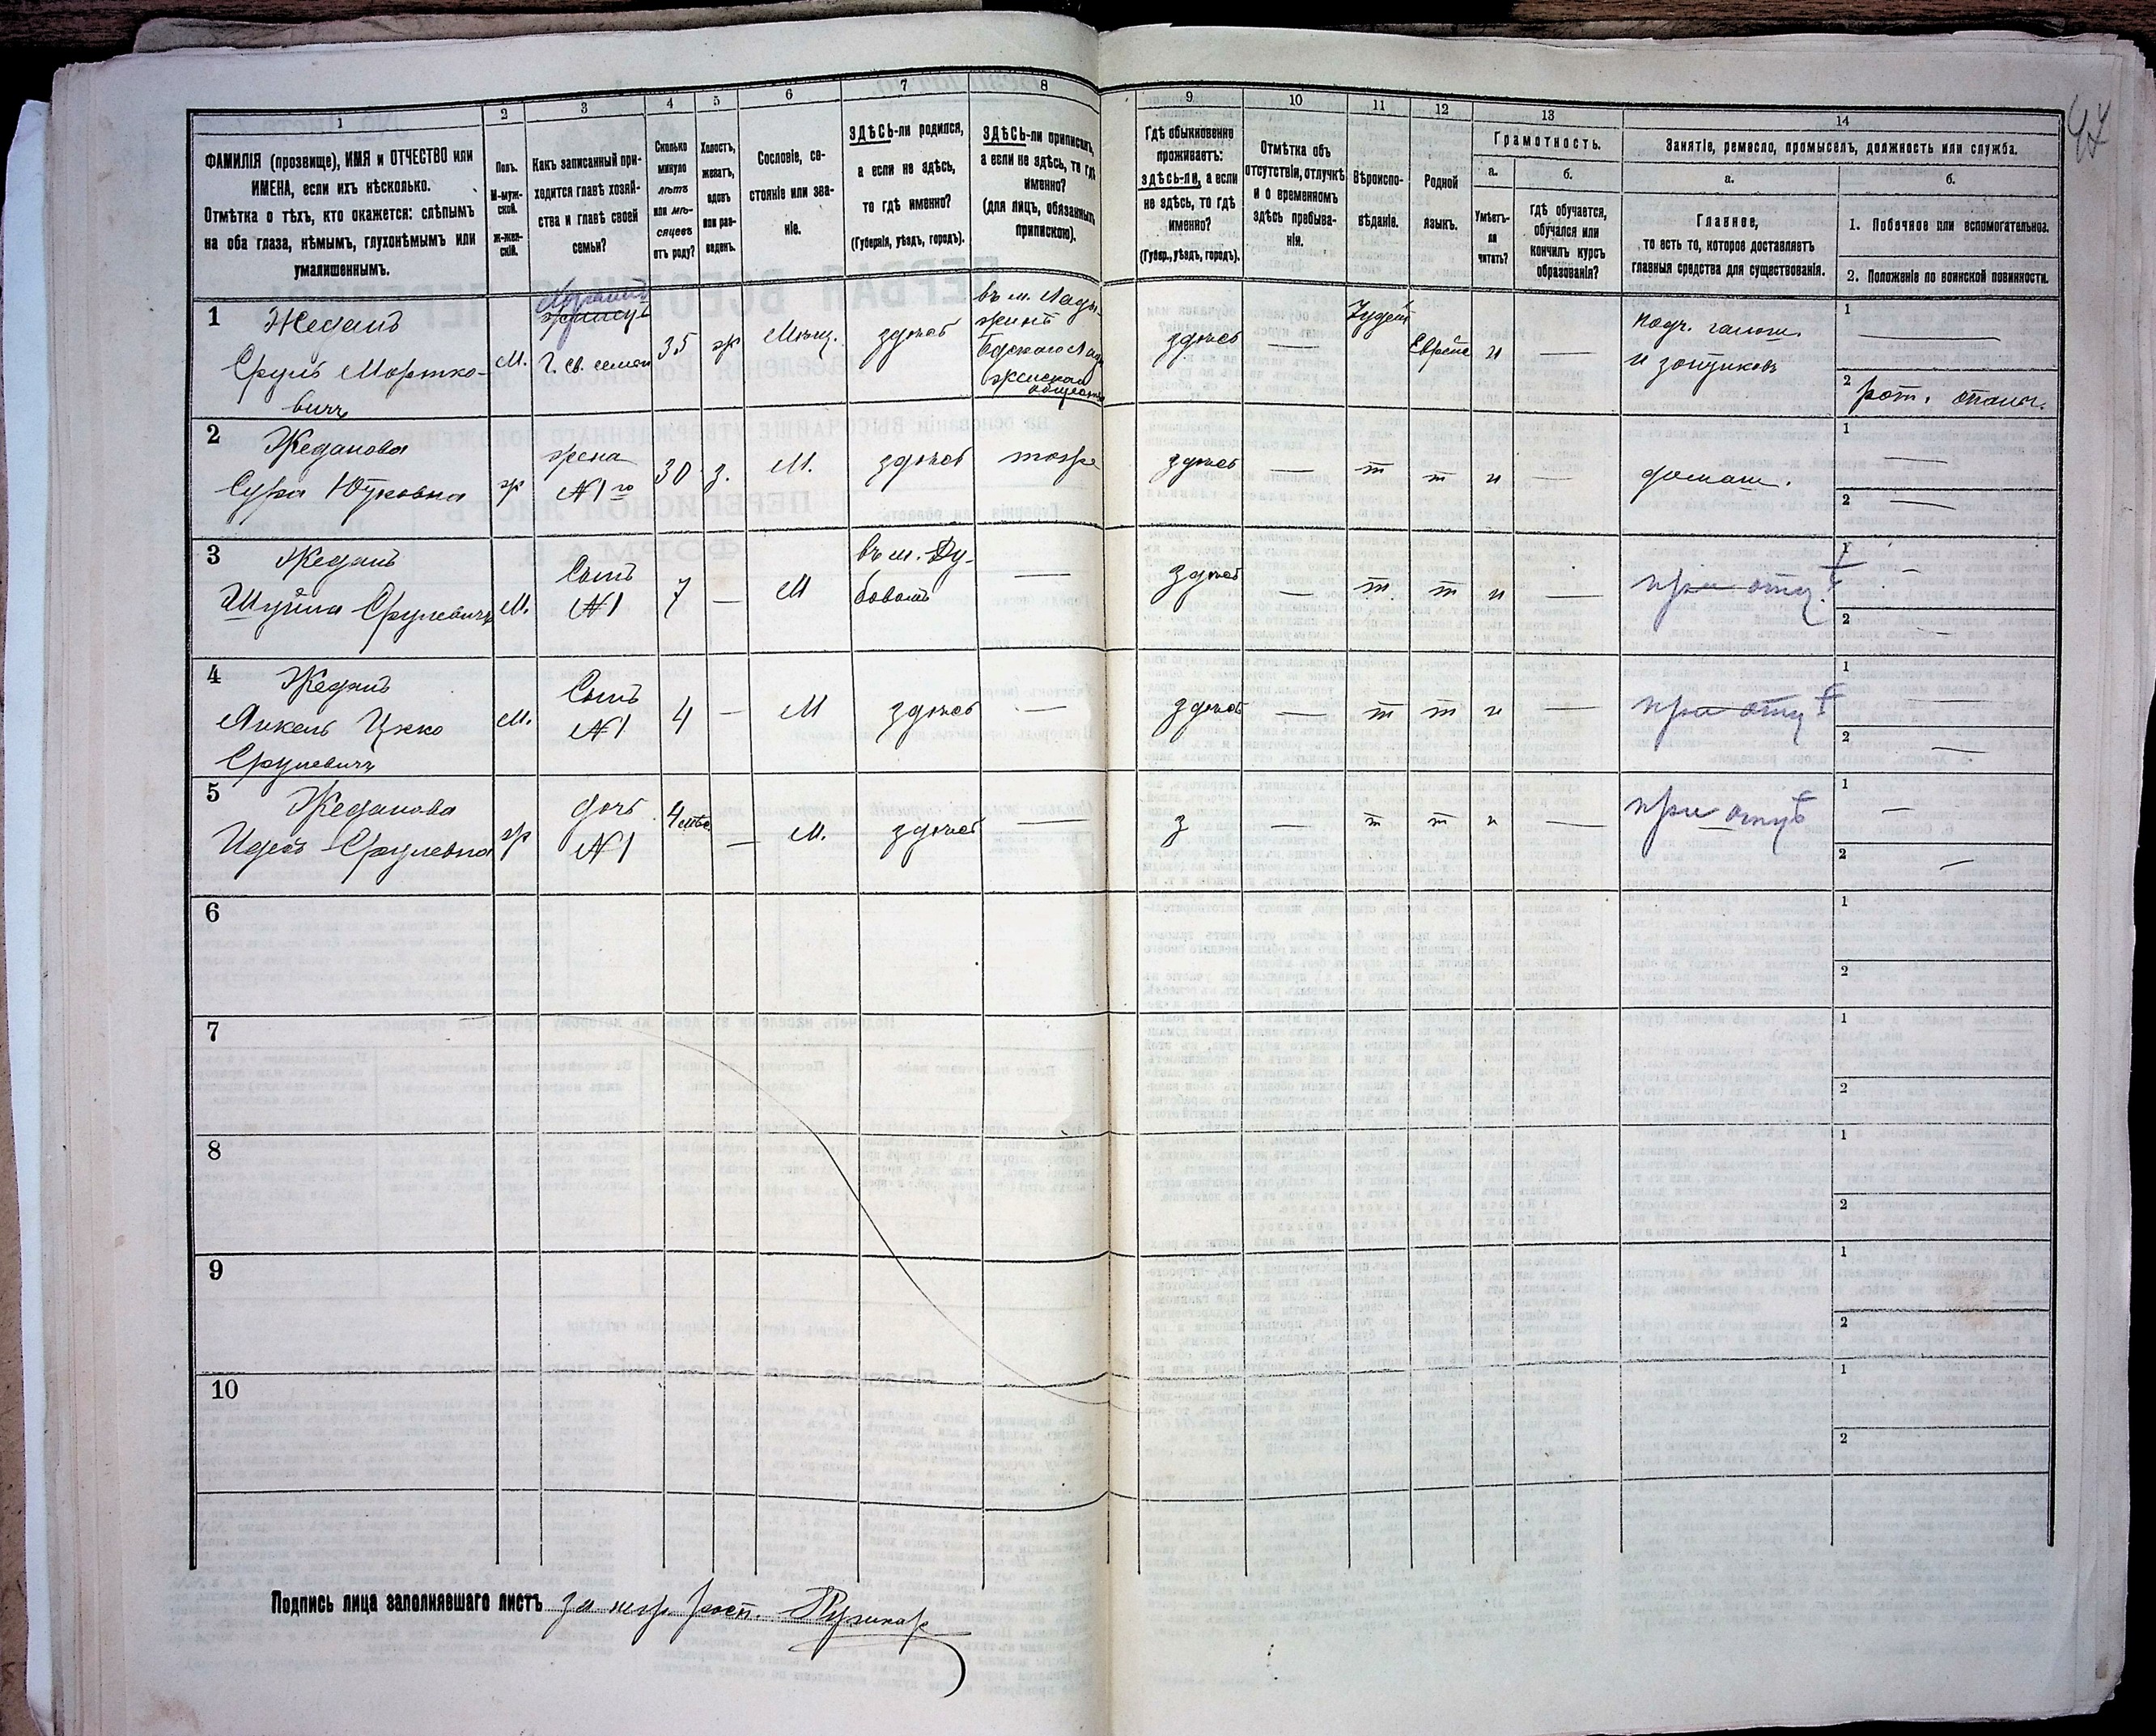 47
1 2 3 4 5 6 7 8 9 10 11 12 13 14
ФАМИЛІЯ (прозвище), ИМЯ и ОТЧЕСТВО или
ИМЕНА, если ихъ нѣсколько.
Отмѣтка о тѣхъ, кто окажется: слѣпымъ
на оба глаза, нѣмымъ, глухонѣмымъ или
умалишеннымъ.
Полъ.
М-муж-
ской.
Ж-жен-
скій.
Какъ записанный при-
ходится главѣ хозяй-
ства и главѣ своей
семьи?
Сколько
минуло
лѣтъ
или мѣ-
сяцевъ
отъ роду?
Холостъ,
женатъ,
вдовъ
или раз-
веденъ.
Сословіе, со-
стояніе или зва-
ніе.
ЗДѢСЬ-ли родился,
а если не здѣсь,
то гдѣ именно?
(Губернія, уѣздъ, городъ).
ЗДѢСЬ-ли приписанъ,
а если не здѣсь, то гдѣ
именно?
(для лицъ, обязанныхъ
припискою).
Гдѣ обыкновенно
проживаетъ:
здѣсь-ли, а если
не здѣсь, то гдѣ
именно?
(Губер., уѣздъ, городъ).
Отмѣтка объ
отсутствіи, отлучкѣ
и о временномъ
здѣсь пребыва-
ніи.
Вѣроиспо-
вѣданіе.
Родной
языкъ.
Грамотность.
а.
Умѣетъ-
ли
читать?
б.
гдѣ обучается,
обучался или
кончилъ курсъ
образованія?
Занятіе, ремесло, промыселъ, должность или служба.
а.
Главное,
то есть то, которое доставляетъ
главныя средства для существованія.
б.
1. Побочное или вспомогательное.
2. Положеніе по воинской повинности.
1 Жеданъ
Сруль Мортко-
вичъ
М. Г. св. семьи 35 ж Мѣщ. здѣсь
здѣсь — Іудей Еврейс н —
и зонтиковъ
1 —
2
2 Жеданова
Сура
ж жена
№ 1го 30 з. М. здѣсь тоже здѣсь — т т н — домаш.
1 —
2 —
3 Жеданъ
Срулевичъ
М. Сынъ
№ 1 7 — М въ м. Ду-
бовомъ — здѣсь — т. т н — при отцѣ
1 —
2 —
4 Жеданъ
Янкель Ицко
Срулевичъ
М. Сынъ
№ 1 4 — М здѣсь — здѣсь — т т н — при отцѣ
1 —
2 —
5 Жеданова
Срулевна
ж дочь
№ 1 4 мѣс. — М. здѣсь — з — т т н — при отцѣ
1 —
2 —
6
1
2
7
1
2
8
1
2
9
1
2
10
1
2
Подпись лица заполнявшаго листъ за негр. росп.